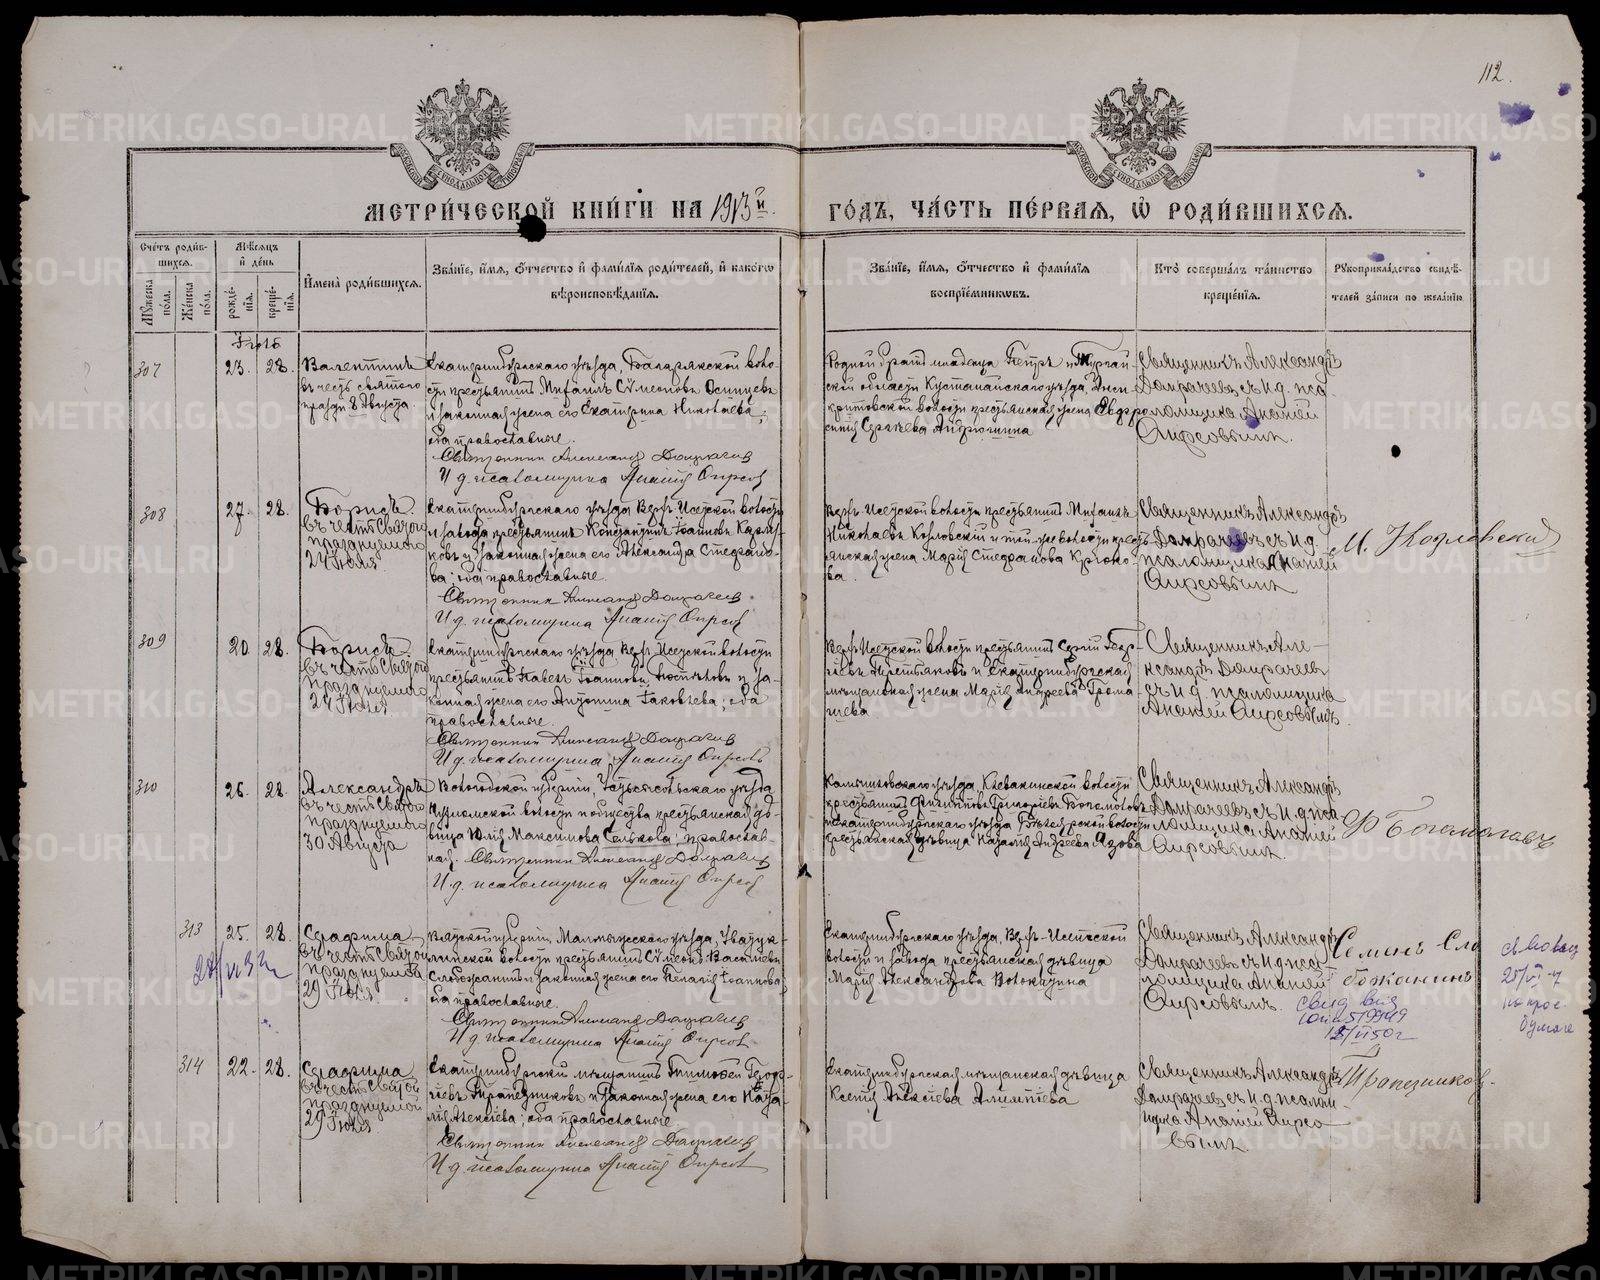 112.
МЕТРИ́ЧЕСКОЙ КНИ́ГИ НА 1913й
ГО́ДЪ, ЧА́СТЬ ПЕ́РВАЯ, Ѡ҆ РОДИ́ВШИХСЯ.
Сче́тъ роди́в-
шихся.
Мꙋ́жеска по́ла.
Же́нска по́ла.
Мѣ́сяцъ
и҆ де́нь
рожде́-
нїя.
креще́-
нїя.
И҆мена̀ роди́вшихся.
Зва́нїе, и҆́мя, ѻ҆́тчество и҆ фами́лїя роди́телей, и҆ како́гѡ
вѣроисповѣ́данїя.
Зва́нїе, и҆́мя, ѻ҆́тчество и҆ фами́лїя
воспрїе́мникѡвъ.
Кто̀ соверша́лъ та́инство
креще́нїя.
Рꙋкоприкла́дство свидѣ́-
телей за́писи по жела́нїю
Іюль
307
23. 28.
Валентинъ
въ честь святого
праздн 8 Августа
Екатеринбургскаго уѣзда, Багарякской воло-
сти крестьянинъ Михаилъ Сѵмеоновъ Осинцевъ
и законная жена его Екатерина Николаева;
оба православные.
Священникъ Александръ Домрачевъ
И. д. псаломщика Ананій Фирсовъ
Родной братъ младенца Петръ и Тургай-
ской области Кустанайскаго уѣзда,
волости крестьянская жена Евфро-
синія Сергѣева Андрюшина
Священникъ Александръ
Домрачевъ съ и. д. пса-
ломщика Ананій
Фирсовымъ.
308
27. 28.
Борисъ
въ честь Святого
празднуемаго
24 Іюля
Екатеринбургскаго уѣзда Верхъ Исетской волости
и завода крестьянинъ Константинъ Іоанновъ
и законная жена его Александра Стефано-
ва; оба православные.
Священникъ Александръ Домрачевъ
И. д. псаломщика Ананій Фирсовъ
Верхъ Исетской волости крестьянинъ Михаилъ
Николаевъ Козловскій и той-же волости кресть-
янская жена Марія Стефанова Крюко-
ва.
Священникъ Александръ
Домрачевъ съ и. д.
псаломщика Ананій
Фирсовымъ
М. Козловский
309
20. 28.
Борисъ
въ честь Святого
празднуемаго
24 Іюля
Екатеринбургскаго уѣзда, Верхъ Исетской волости
крестьянинъ Павелъ Іоанновъ и за-
конная жена его Антонина Іаковлева; оба
православные.
Священникъ Александръ Домрачевъ
И. д. псаломщика Ананій Фирсовъ
Верхъ Исетской волости крестьянинъ Сергій Геор-
гіевъ и Екатеринбургская
мѣщанская жена Марія Андреева Грома-
чева
Священникъ Але-
ксандръ Домрачевъ
съ и. д. псаломщика
Ананій Фирсовымъ
310
26. 28.
Александръ
въ честь Святого
празднуемаго
30 Августа
Вологодской губерніи, Устьсысольскаго уѣзда
волости и общества крестьянская вдо-
вица Юлія Максимова; православ-
ная. Священникъ Александръ Домрачевъ
И. д. псаломщика Ананій Фирсовъ
Камышловскаго уѣзда, Клевакинской волости
крестьянинъ Филиппъ Григоріевъ Богомоловъ
и Екатеринбургскаго уѣзда волости
крестьянская дѣвица Наталія Андреева
Священникъ Александръ
Домрачевъ съ и. д. пса-
ломщика Ананій
Фирсовымъ.
Ф Богомоловъ
313
25. 28.
Серафима
въ честь Святой
празднуемой
29 Іюля
Вятской губерніи, Малмыжскаго уѣзда,
волости крестьянинъ Сѵмеонъ Васильевъ
Слобожанинъ и законная жена его Пелагія Іоаннова;
оба православные.
Священникъ Александръ Домрачевъ
И. д. псаломщика Ананій Фирсовъ
Екатеринбургскаго уѣзда, Верхъ-Исетской
волости и завода крестьянская дѣвица
Марія Александрова
Священникъ Александръ
Домрачевъ съ и. д. пса-
ломщика Ананій
Фирсовымъ.
Семенъ Сло
божанинъ
314
22. 28.
Серафима
въ честь Святой
празднуемой
29 Іюля
Екатеринбургскій мѣщанинъ Тимофей Геор-
гіевъ Трапезниковъ и законная жена его Ната-
лія Алексіева; оба православные
Священникъ Александръ Домрачевъ
И. д. псаломщика Ананій Фирсовъ
Екатеринбургская мѣщанская дѣвица
Ксенія Алексіева
Священникъ Александръ
Домрачевъ съ и. д. псалом-
щика Ананій Фирсо-
вымъ.
Трапезниковъ